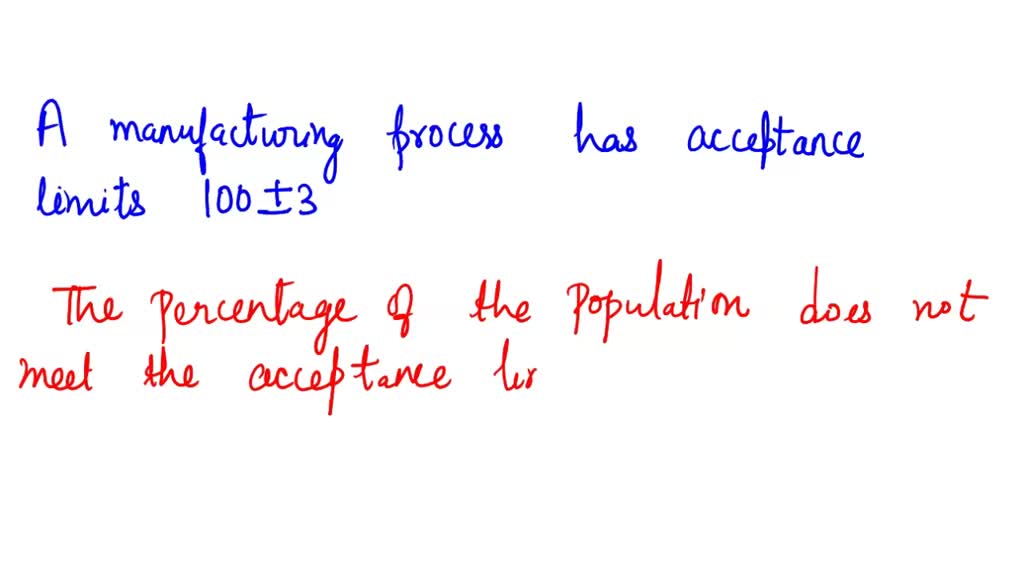 A manufacturing process has acceptance
limits 100 ± 3
The percentage of the population does not
meet the acceptance